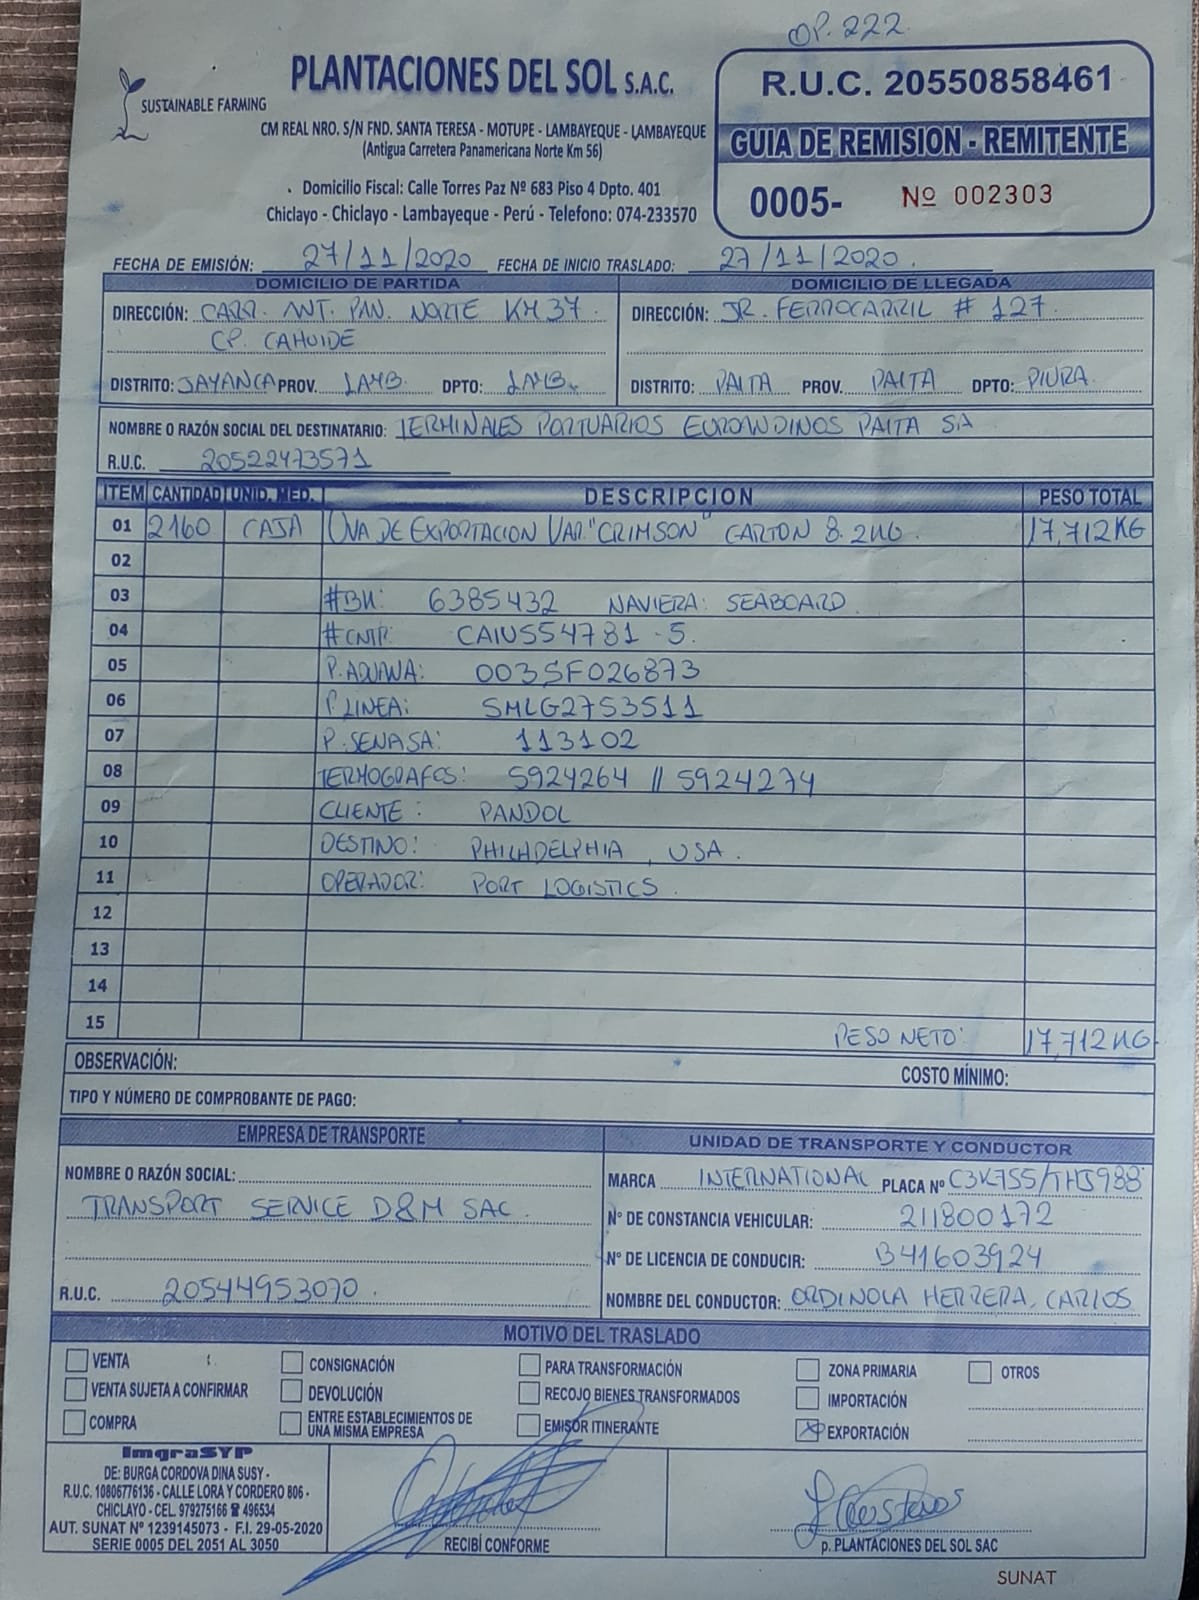 OP. 222
SUSTAINABLE FARMING
PLANTACIONES DEL SOL S.A.C.
CM REAL NRO. S/N FND. SANTA TERESA - MOTUPE - LAMBAYEQUE - LAMBAYEQUE
(Antigua Carretera Panamericana Norte Km 56)
. Domicilio Fiscal: Calle Torres Paz Nº 683 Piso 4 Dpto. 401
Chiclayo - Chiclayo - Lambayeque - Perú - Telefono: 074-233570
R.U.C. 20550858461
GUIA DE REMISION - REMITENTE
0005- Nº 002303
FECHA DE EMISIÓN: 27/11/2020 FECHA DE INICIO TRASLADO: 27/11/2020.
DOMICILIO DE PARTIDA
DIRECCIÓN: CARR. ANT. PAN. NORTE KM 37.
CP. CAHUIDE
DISTRITO: JAYANCA PROV. LAMB. DPTO: LAMB.
DOMICILIO DE LLEGADA
DIRECCIÓN: JR. FERROCARRIL # 127.
DISTRITO: PAITA PROV. PAITA DPTO: PIURA.
NOMBRE O RAZÓN SOCIAL DEL DESTINATARIO: TERMINALES PORTUARIOS EUROANDINOS PAITA SA
R.U.C. 20522473571
ITEM CANTIDAD UNID. MED. DESCRIPCION PESO TOTAL
01 2160 CAJA UVA DE EXPORTACION VAR. "CRIMSON" CARTON 8.2KG. 17,712KG
02
03 #BK: 6385432 NAVIERA: SEABOARD.
04 #CNTR: CAIU554781-5.
05 P. ADUANA: 003SF026873
06 P. LINEA: SMLG2753511
07 P. SENASA: 113102
08 TERMOGRAFOS: 5924264 // 5924274
09 CLIENTE: PANDOL
10 DESTINO: PHILADELPHIA, USA.
11 OPERADOR: PORT LOGISTICS.
12
13
14
15 PESO NETO: 17,712KG
OBSERVACIÓN:
COSTO MÍNIMO:
TIPO Y NÚMERO DE COMPROBANTE DE PAGO:
EMPRESA DE TRANSPORTE
NOMBRE O RAZÓN SOCIAL:
TRANSPORT SERVICE D&M SAC.
R.U.C. 20544953070.
UNIDAD DE TRANSPORTE Y CONDUCTOR
MARCA INTERNATIONAL PLACA Nº C3K755/THJ988
Nº DE CONSTANCIA VEHICULAR: 211800172
Nº DE LICENCIA DE CONDUCIR: B41603924
NOMBRE DEL CONDUCTOR: ORDINOLA HERRERA, CARLOS
MOTIVO DEL TRASLADO
VENTA CONSIGNACIÓN PARA TRANSFORMACIÓN ZONA PRIMARIA OTROS
VENTA SUJETA A CONFIRMAR DEVOLUCIÓN RECOJO BIENES TRANSFORMADOS IMPORTACIÓN
COMPRA ENTRE ESTABLECIMIENTOS DE UNA MISMA EMPRESA EMISOR ITINERANTE X EXPORTACIÓN
ImgraSYP
DE: BURGA CORDOVA DINA SUSY -
R.U.C. 10806776136 - CALLE LORA Y CORDERO 806 -
CHICLAYO - CEL. 979275166 ☎ 496534
AUT. SUNAT Nº 1239145073 - F.I. 29-05-2020
SERIE 0005 DEL 2051 AL 3050
RECIBÍ CONFORME
p. PLANTACIONES DEL SOL SAC
SUNAT